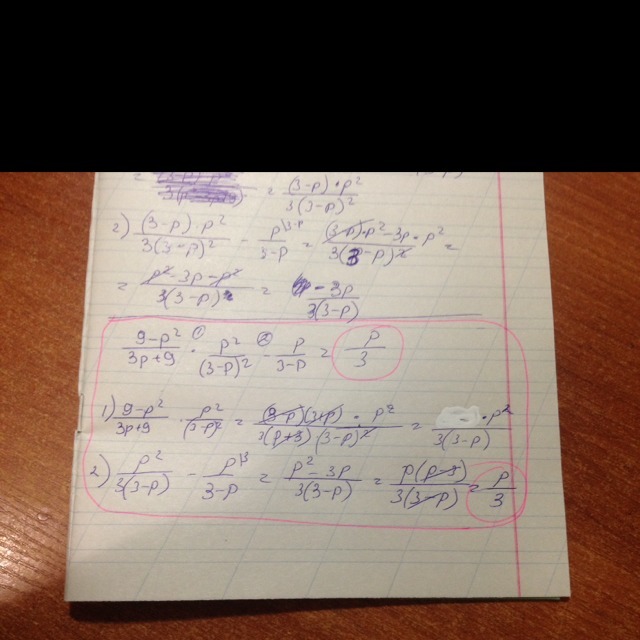 = = (3-p)·p² / 3(3-p)²
2) (3-p)·p² / 3(3-p)² - p / 3-p = (3-p)·p²-3p·p² / 3(3-p)² =
= p²-3p-p² / 3(3-p) = -3p / 3(3-p)
9-p² / 3p+9 · p² / (3-p)² - p / 3-p = p / 3
1) 9-p² / 3p+9 · p² / (3-p)² = (3-p)(3+p)·p² / 3(p+3)(3-p)² = ·p² / 3(3-p)
2) p² / 3(3-p) - p\3 / 3-p = p²-3p / 3(3-p) = p(p-3) / 3(3-p) = p / 3